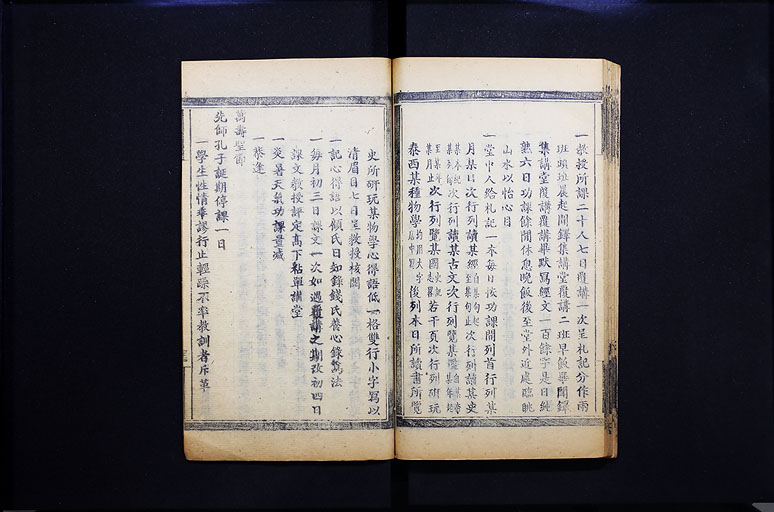 一教授所課二十人七日覆講一次呈札記分作兩
班頭班晨起聞鐸集講堂覆講二班早飯畢聞鐸
集講堂覆講覆講畢默寫經文一百餘字是日純
熟六日功課餘閒休息晚飯後至堂外近處臨眺
山水以怡心目
一堂中人給札記一本每日依功課間列首行列某
月某日次行列讀某經自某句起至某句止次行列讀某史
某本紀某列傳次行列讀某古文次行列覽某圖自某年某月起
至某年某月止次行列覽某國志略若干頁次行列研玩
泰西某種物學均用大字居中後列本日所讀書所覽
史所研玩某物學心得語低一格雙行小字寫以
清眉目七日呈教授核閱
一記心得語以顧氏日知錄錢氏養心錄為法
一每月初三日課文一次如遇覆講之期改初四日
課文教授評定高下黏單講堂
一炎暑天氣功課量減
一恭逢
萬壽聖節
先師孔子誕期停課一日
一學生性情乖謬行止輕躁不率教訓者斥革